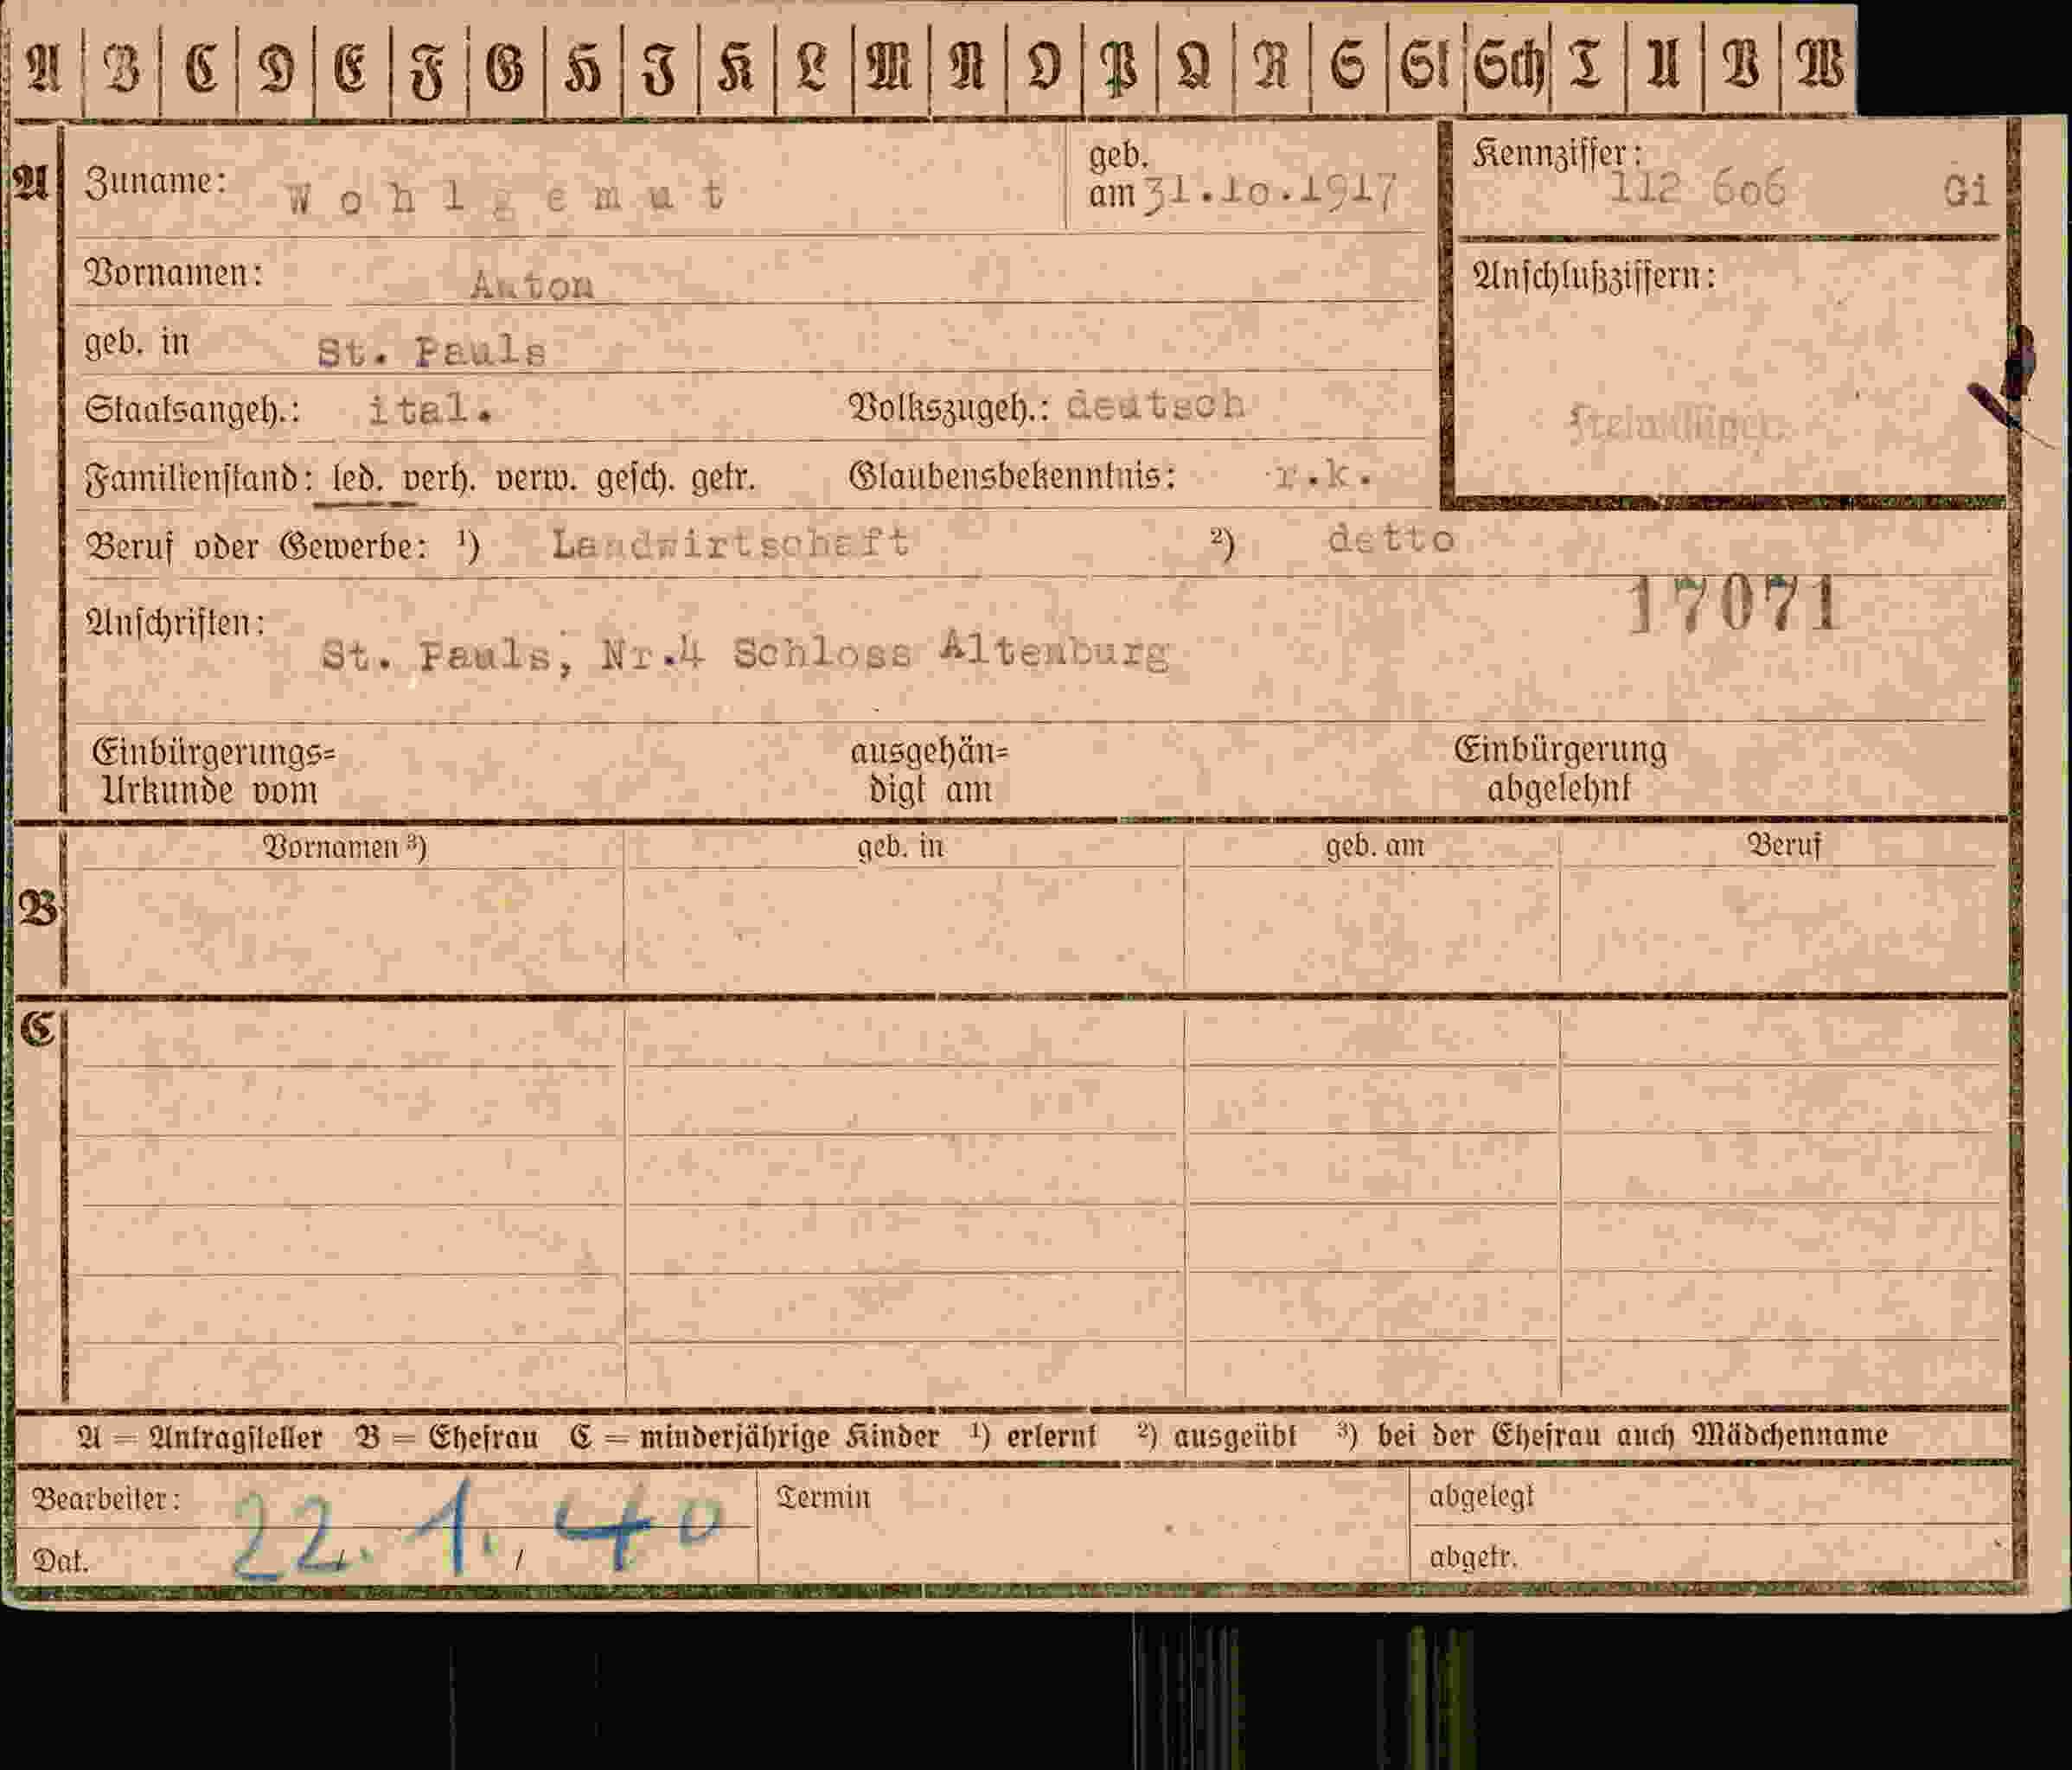 A B C D E F G H I K L M N O P Q R S St Sch T U V W
A Zuname: Wohlgemut geb. am 31.10.1917 Kennziffer: 112 606 Gi
Vornamen: Anton Anschlußziffern:
geb. in St. Pauls
Staatsangeh.: ital. Volkszugeh.: deutsch
Familienstand: led. verh. verw. gesch. getr. Glaubensbekenntnis: r.k.
Beruf oder Gewerbe: ¹) Landwirtschaft ²) detto
17071
Anschriften:
St. Pauls, Nr.4 Schloss Altenburg
Einbürgerungs= ausgehän= Einbürgerung
Urkunde vom digt am abgelehnt
Vornamen ³) geb. in geb. am Beruf
B
C
A = Antragsteller B = Ehefrau C = minderjährige Kinder ¹) erlernt ²) ausgeübt ³) bei der Ehefrau auch Mädchenname
Bearbeiter: Termin abgelegt
Dat. 22.1.40 abgetr.